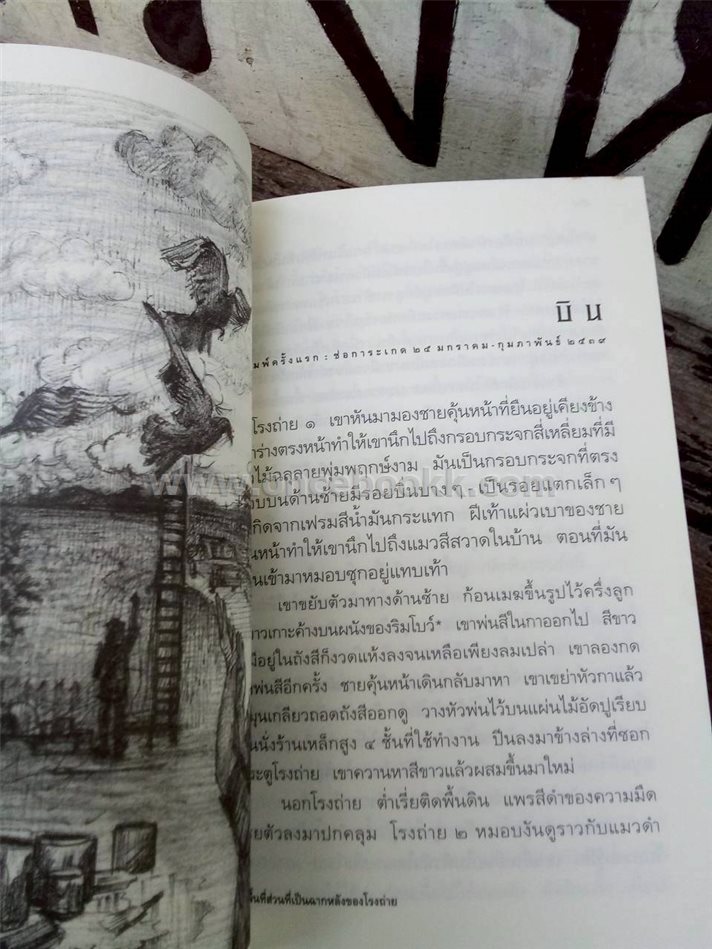 บิน
มพ์ครั้งแรก : ช่อการะเกด ๒๕ มกราคม-กุมภาพันธ์ ๒๕๓๙
โรงถ่าย ๑ เขาหันมามองชายคุ้นหน้าที่ยืนอยู่เคียงข้าง
าร่างตรงหน้าทำให้เขานึกไปถึงกรอบกระจกสี่เหลี่ยมที่มี
ไม้ฉลุลายพุ่มพฤกษ์งาม มันเป็นกรอบกระจกที่ตรง
อบบนด้านซ้ายมีรอยบิ่นบาง ๆ เป็นรอยแตกเล็ก ๆ
กิดจากเฟรมสีน้ำมันกระแทก ฝีเท้าแผ่วเบาของชาย
นหน้าทำให้เขานึกไปถึงแมวสีสวาดในบ้าน ตอนที่มัน
นเข้ามาหมอบซุกอยู่แทบเท้า
เขาขยับตัวมาทางด้านซ้าย ก้อนเมฆขึ้นรูปไว้ครึ่งลูก
าวเกาะค้างบนผนังของริมโบว์* เขาพ่นสีในกาออกไป สีขาว
มีอยู่ในถังสีก็งวดแห้งลงจนเหลือเพียงลมเปล่า เขาลองกด
พ่นสีอีกครั้ง ชายคุ้นหน้าเดินกลับมาหา เขาเขย่าหัวกาแล้ว
มุนเกลียวถอดถังสีออกดู วางหัวพ่นไว้บนแผ่นไม้อัดปูเรียบ
นนั่งร้านเหล็กสูง ๔ ชั้นที่ใช้ทำงาน ปีนลงมาข้างล่างที่ซอก
ระตูโรงถ่าย เขาควานหาสีขาวแล้วผสมขึ้นมาใหม่
นอกโรงถ่าย ต่ำเรี่ยติดพื้นดิน แพรสีดำของความมืด
ยตัวลงมาปกคลุม โรงถ่าย ๒ หมอบงันดูราวกับแมวดำ
ื้นที่ส่วนที่เป็นฉากหลังของโรงถ่าย